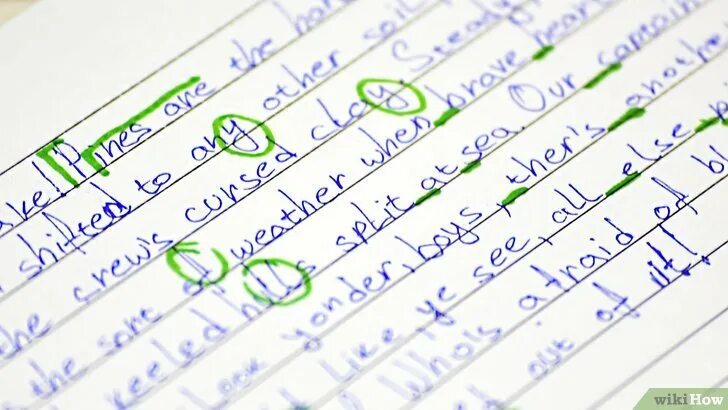 ake! Pines are the har
shifted to any other soil
the crew's cursed clay. Steady
the sort of weather when brave heart
keeled hills split at sea. Our captain
Look yonder, boys, there's another
Like ye see, all else
Who's afraid of bl
out of it!
wikiHow